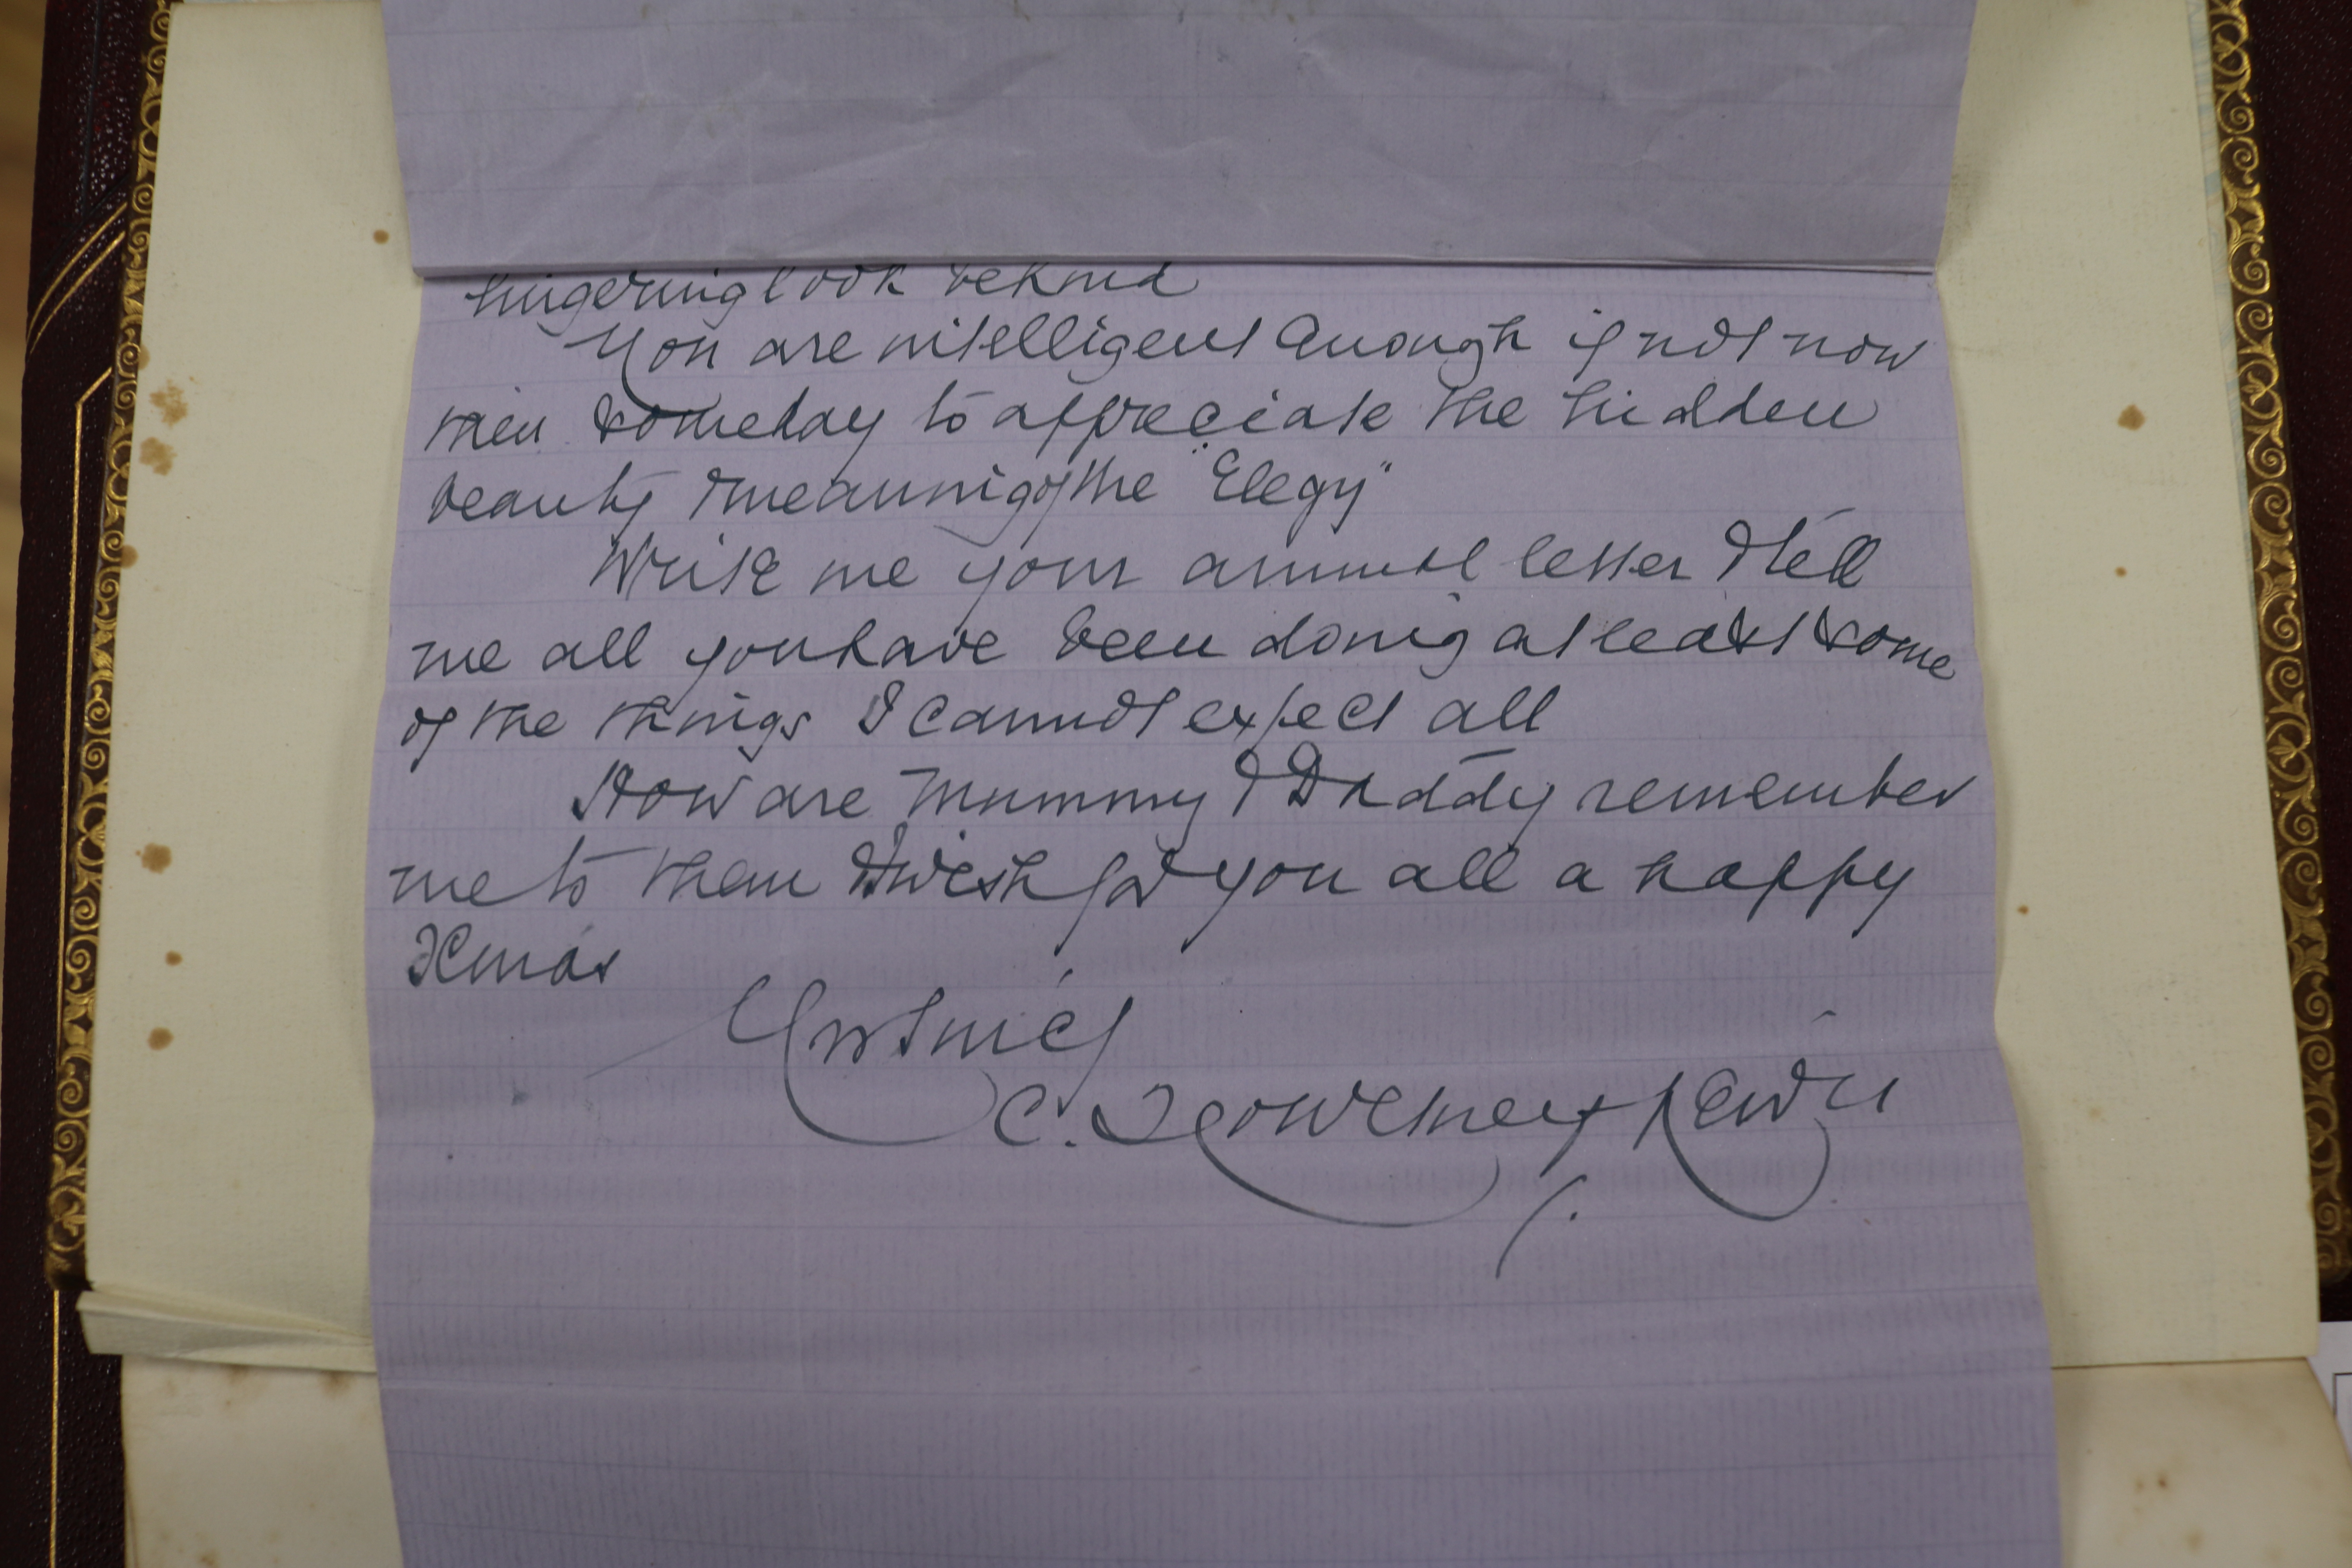 lingering look behind
You are intelligent enough if not now
then someday to appreciate the hidden
beauty & meaning of the "Elegy"
Write me your annual letter & tell
me all you have been doing at least some
of the things I cannot expect all
How are Mummy & Daddy remember
me to them & wish for you all a happy
Xmas
C.